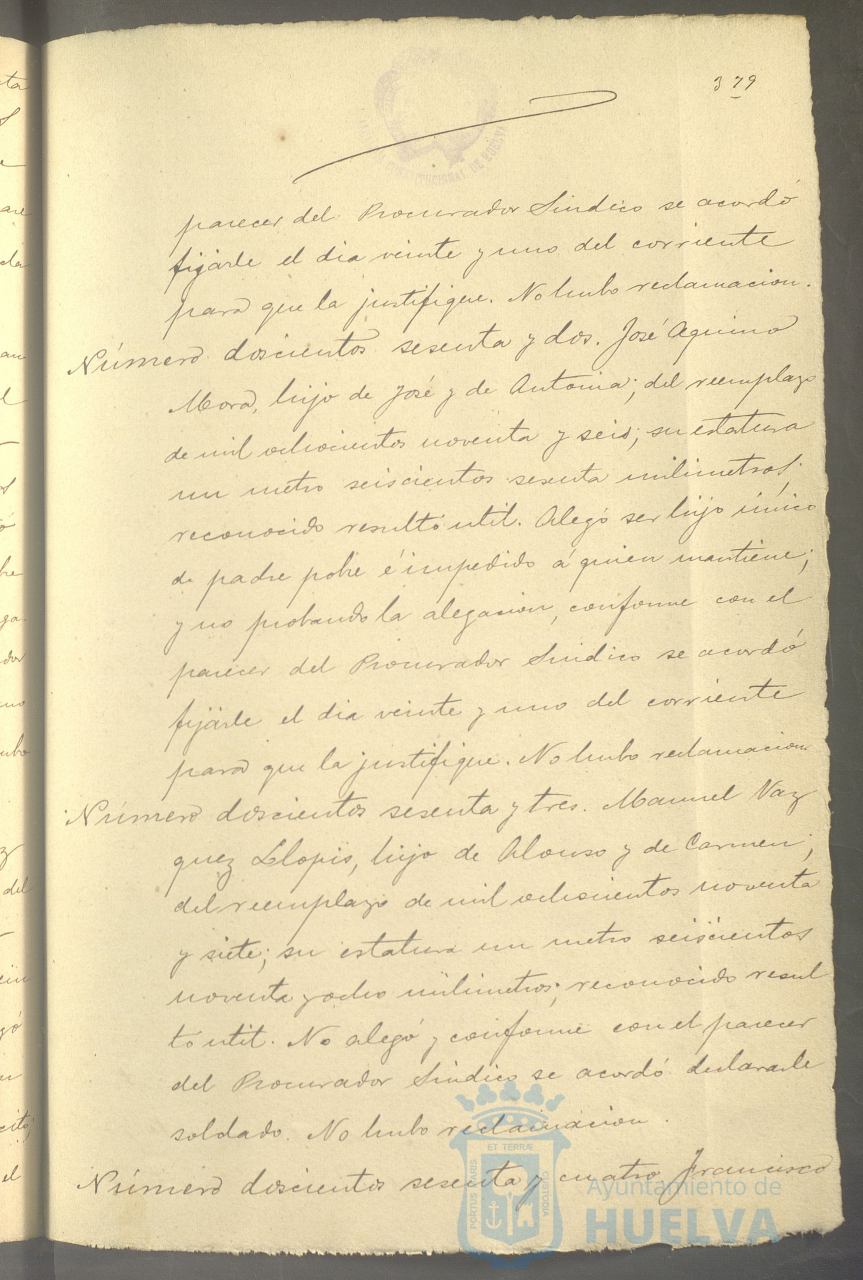 379
parecer del Procurador Sindico se acordó
fijarle el dia veinte y uno del corriente
para que la justifique. No hubo reclamacion.
Número doscientos sesenta y dos. José Aquino
Mora, hijo de José y de Antonia; del reemplazo
de mil ochocientos noventa y seis; su estatura
un metro seiscientos sesenta milimetros;
reconocido resultó util. Alegó ser hijo único
de padre pobre é impedido á quien mantiene;
y no probando la alegacion, conforme con el
parecer del Procurador Sindico se acordó
fijarle el dia veinte y uno del corriente
para que la justifique. No hubo reclamacion
Número doscientos sesenta y tres. Manuel Vaz
quez Llopis, hijo de Alonso y de Carmen;
del reemplazo de mil ochocientos noventa
y siete; su estatura un metro seiscientos
noventa y ocho milimetros; reconocido resul
tó util. No alegó y conforme con el parecer
del Procurador Sindico se acordó declararle
soldado. No hubo reclamacion.
Número doscientos sesenta y cuatro Francisco
PORTUS MARIS ET TERRÆ CUSTODIA
Ayuntamiento de
HUELVA